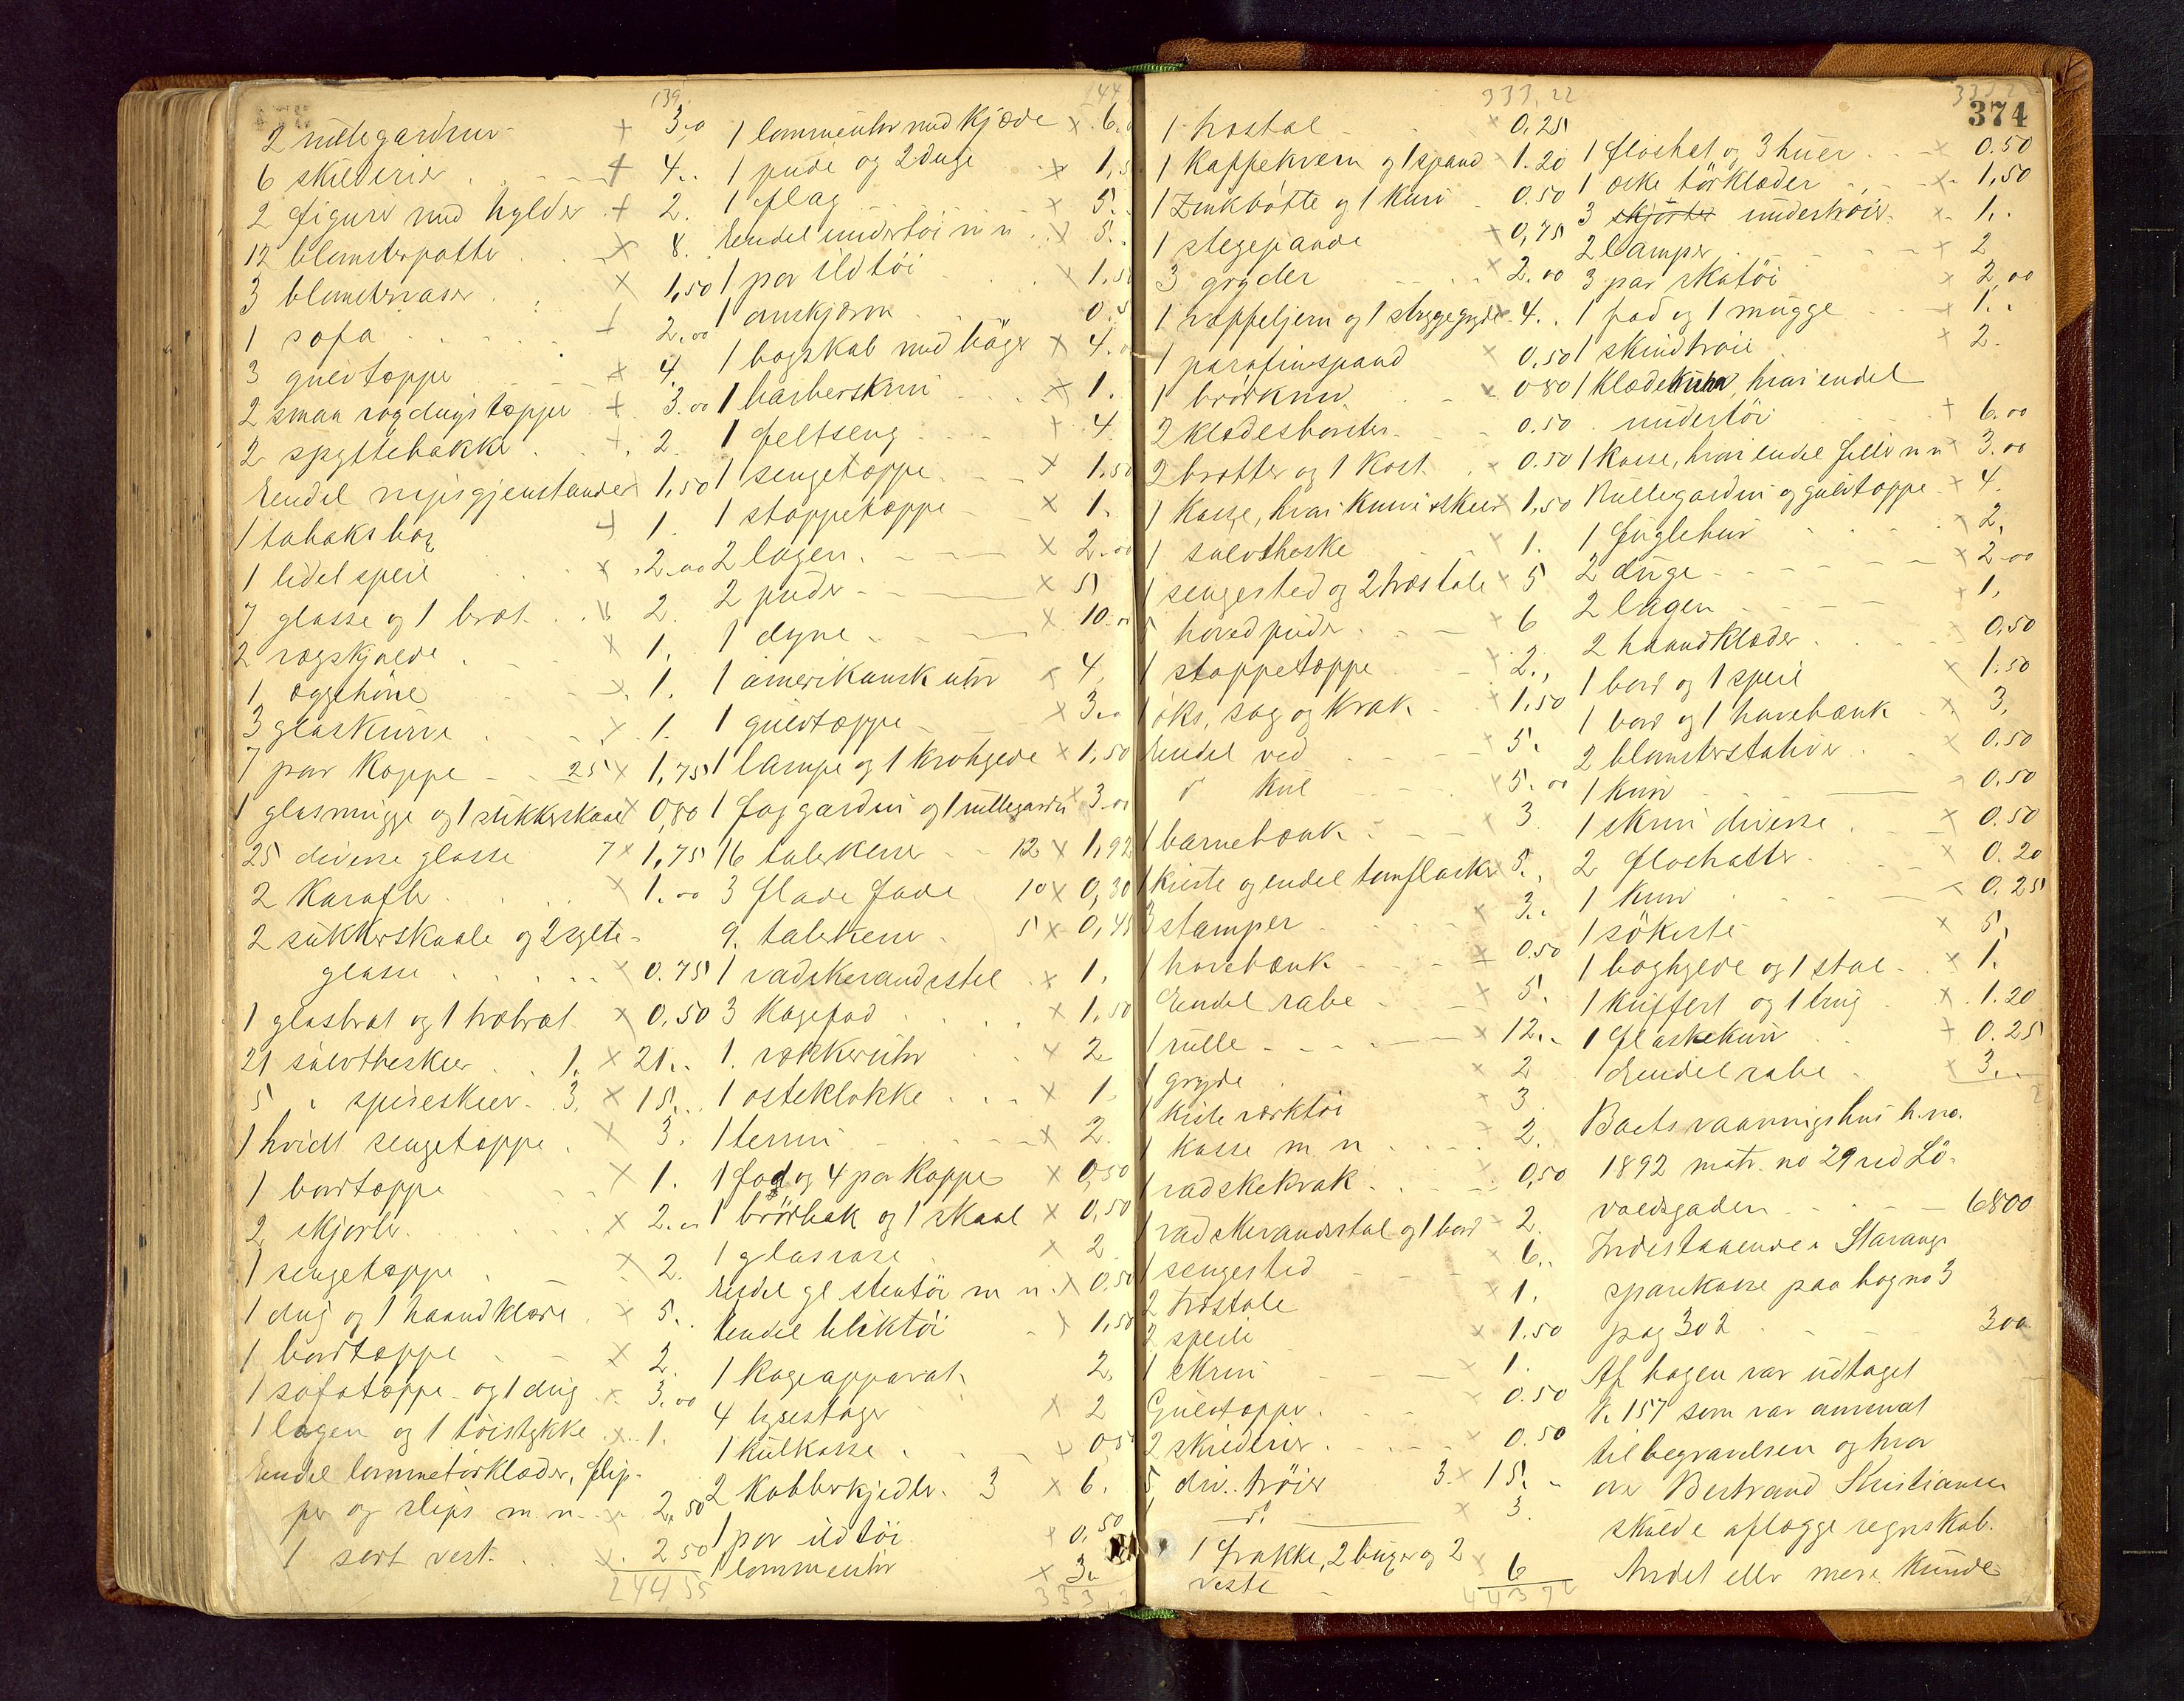 139.
2 rullegardiner + 3.00
6 skilderier + 4..
2 figurer med hylder + 2.
12 blomsterpotter x 8.
3 blomstervaser x 1,50
1 sofa + 2.00
3 gulvtæppe x 4.
2 smaa tæpper + 3.00
2 spyttebakker + 2.
Endel nipsgjenstander 1,50
1 tobaksbog + 1.
1 lidet speil x 2.00
7 glasse og 1 bræt x 2.
2 røgskjolde x 1.
1 æggehöne x 1.
3 glaskurve x 1.
7 par kopper 25 x 1,75
1 glasmugge og 1 sukkerskaal x 0,80
25 diverse glasse 7 x 1,75
2 karafler x 1.00
2 sukkerskaale og 2 sylte-
glasse x 0.75
1 glasbræt og 1 træbræt x 0,50
21 sølvtheskeer 1. x 21..
5 " spiseskeer 3. x 15..
1 hvidt sengetæppe x 3.
1 bordtæppe x 1.
2 skjorter x 2.00
1 sengetæppe x 2.
1 dug og 1 haandklæde x 5.
1 bordtæppe x 2.
1 sofatæppe og 1 dug x 3.00
1 lagen og 1 töistykke x 1.
Endel lommetörklæder, flip-
per og slips m m x 2,50
1 sort vest x 2 50
244 55
144
1 lommeuhr med kjæde x 6.0
1 pude og 2 duge x 1,5
1 flag x 5.
Endel undertöi m m x 5.
1 par ildtöi x 1.50
0.5
1 bogskab med böger x 4.0
1 barberskrin x 1.
1 feltseng + 4.
1 sengetæppe x 1,50
1 stoppetæppe x 1.
2 lagen x 2.00
2 puder x 5
1 dyne x 10.00
1 amerikansk uhr x 4,
1 gulvtæppe x 3.00
1 lampe og 1 krohylde x 1,50
1 fag gardin og 1 rullegardin x 3.00
16 talerkener 12 x 1,92
3 flade fade 10 x 0,30
9. talerkener 5 x 0,45
1 vadskevandsstel x 1,
3 kagefad x 1,50
1. vækkeruhr x 2
1 osteklokke x 1
1 terrin x 2.
1 fad og 4 par kopper x 0,50
1 brödbak og 1 skaal x 0,50
1 glasvase x 2
Endel gl stentöi m m x 0.50
Endel bliktöi x 1,50
1 kogeapparat 2,
4 lysestager x 2
1 kulkasse x 0,5
2 kobberkjedler 3 x 6.
1 par ildtöi x 0,50
1 lommeuhr x 3..
333,
333,22
1 træstol x 0,25
1 kaffekværn og 1 spand x 1.20
1 Zinkbötte og 1 kurv 0.50
1 stegepande + 0,75
3 gryder x 2.00
1 vaffeljern og 1 stryggegryde 4.
1 parafinspand x 0,50
1 brödkurv x 080
2 klædesbörster 0.50
2 brætter og 1 kost x 0.50
1 kasse, hvori knive & skeer x 1,50
1 sølvtheske x 1.
1 sengested og 2 træstole x 5
5 hovedpuder x 6
1 stoppetæppe x 2.,
1 öks, sag og krak x 1,50
Endel ved 5.
d kul x 5.00
1 barnebænk x 3.
1 kiste og endel tomflasker x 5.,
3 stamper x 3..
1 havebænk x 0.50
Endel rabe x 5.
1 rulle x 12..
1 gryde x 2
1 kiste værktöi x 3.
1 kasse m m 2.
1 vadskekrak 0,50
1 vadskevandsstol og 1 bord 2.
1 sengested x 6..
2 træstole x 1.
2 speile x 1.50
1 skrin x 1.
Gulvtæpper x 0.50
2 skilderier 0.50
5 div. tröier 3. x 15.
1 d. x 3.
1 frakke, 2 buxer og 2 x 6
veste
443 72
374
1 floshat og 3 huer x 0.50
1 æske törklæder x 1,50
3 skjorter undertröier x 1..
2 lamper x 2
3 par skotöi x 2,00
1 fad og 1 mugge x 1..
1 skindtröie x 2.
1 klædekurv, hvori endel
undertöi + 6.00
1 kasse, hvori endel filler m m x 3.00
Rullegardin og gulvtæppe x 4.
1 fuglebur x 2,
2 duge x 2.00
2 lagen + 1,
2 haandklæder 0,50
1 bord og 1 speil x 1.50
1 bord og 1 havebænk x 3,
2 blomsterstativer x 0.50
1 kurv 0,50
1 skrin diverse x 0.50
2 floshatter x 0.20
1 kurv x 0.25
1 sökiste x 5,
1 boghylde og 1 stol x 1.
1 kuffert og 1 krug x 1.20
1 flaskekurv + 0.25
Endel rabe x 3..
Boets vaaningshus h. no.
1892 matr. no 29 ved Lö-
voldsgaden 6800
Indestaaende i Stavang.
sparekasse paa bog no 3
pag 302 300
Af bogen var udtaget
Kr. 157 som var anvendt
til begravelsen og hvor
over Bertrand Kristiansen
skulde aflægge regnskab.
Andet eller mere kunde